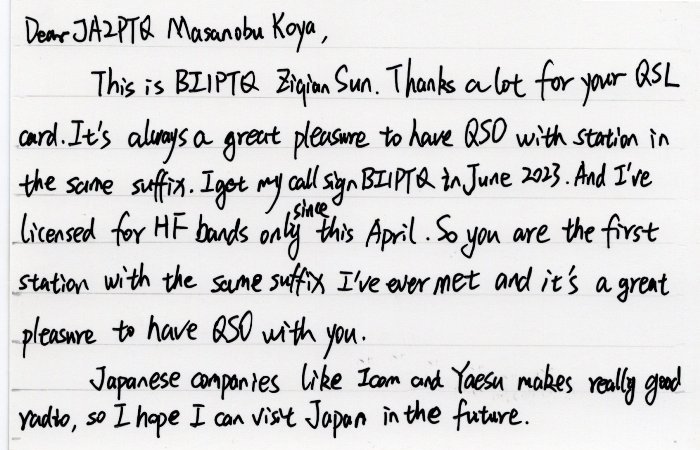 Dear JA2PTQ Masanobu Koya,
This is BI1PTQ Ziqian Sun. Thanks a lot for your QSL
card. It's always a great pleasure to have QSO with station in
the same suffix. I got my call sign BI1PTQ in June 2023. And I've
licensed for HF bands only since this April. So you are the first
station with the same suffix I've ever met and it's a great
pleasure to have QSO with you.
Japanese companies like Icom and Yaesu makes really good
radio, so I hope I can visit Japan in the future.